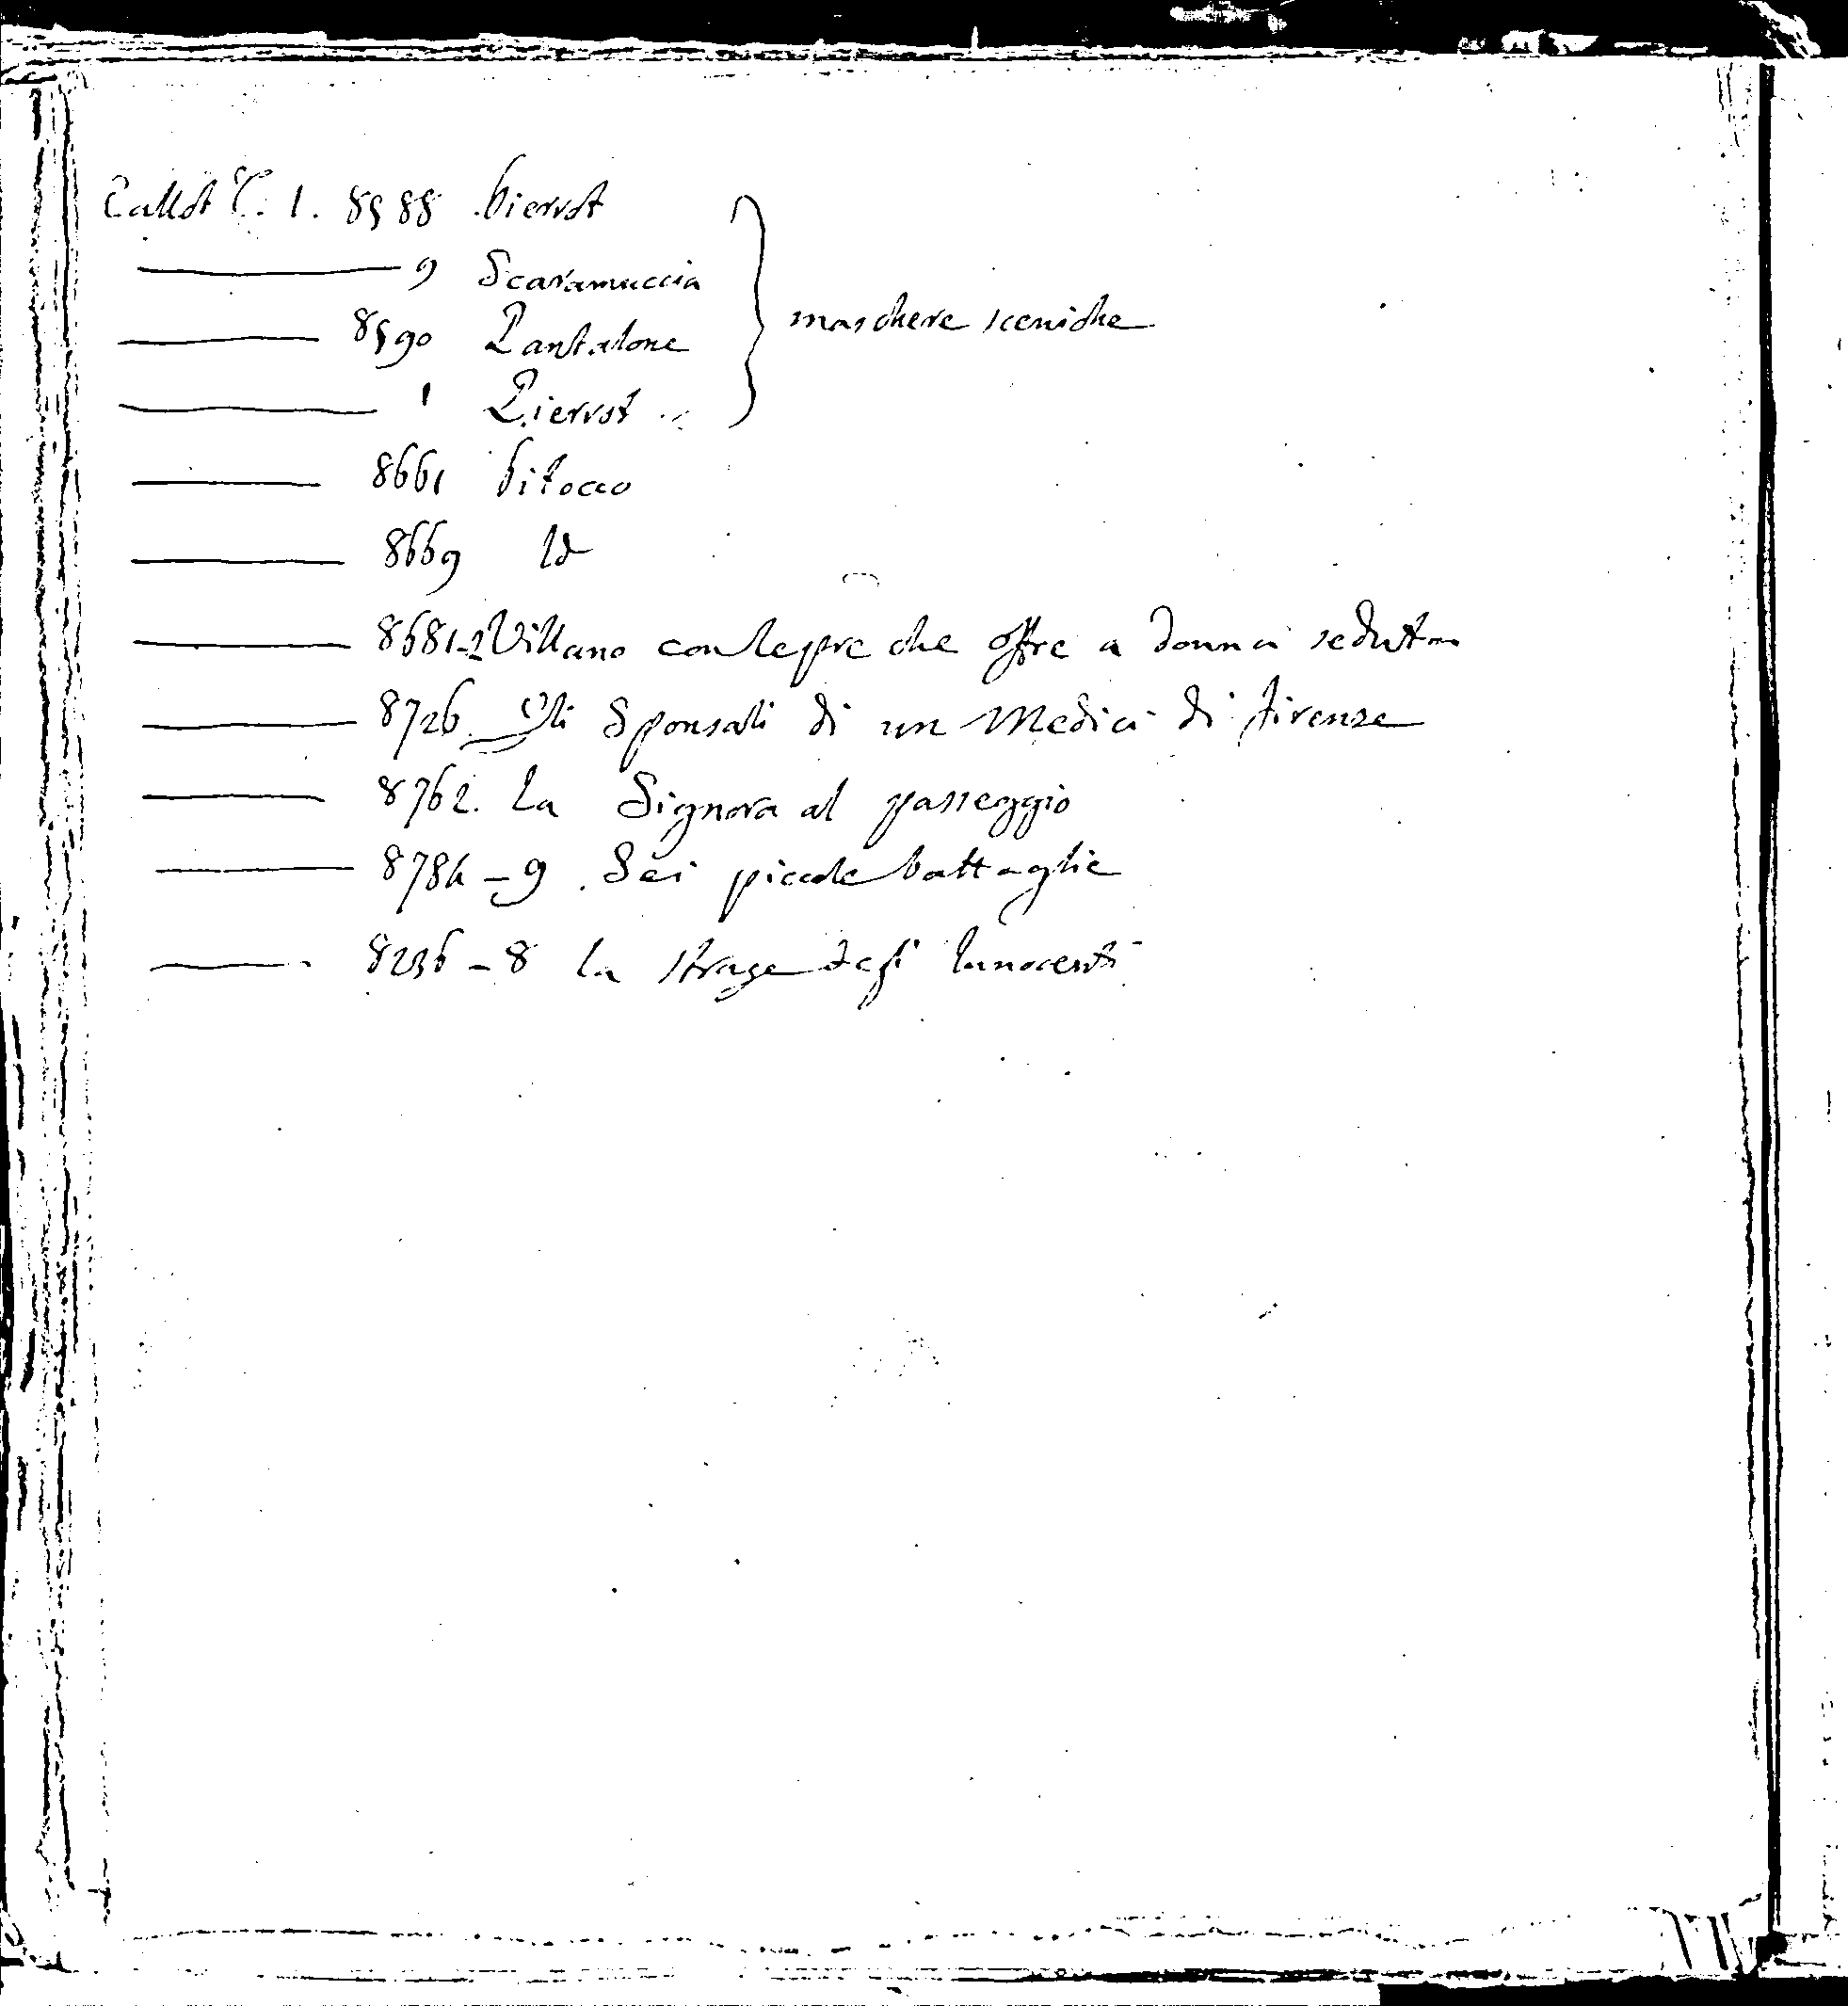 Callot C. 1. 8588 Pierrot
9 Scaramuccia
8590 Pantalone
1 Pierrot
maschere sceniche
8661 Pitocco
8669 Id
8681-2 Villano con lepre che offre a donna seduta
8726. Gli Sponsali di un Medici di Firenze
8762. La Signora al passeggio
8784-9. Sei piccole battaglie
8236-8 La strage degli Innocenti